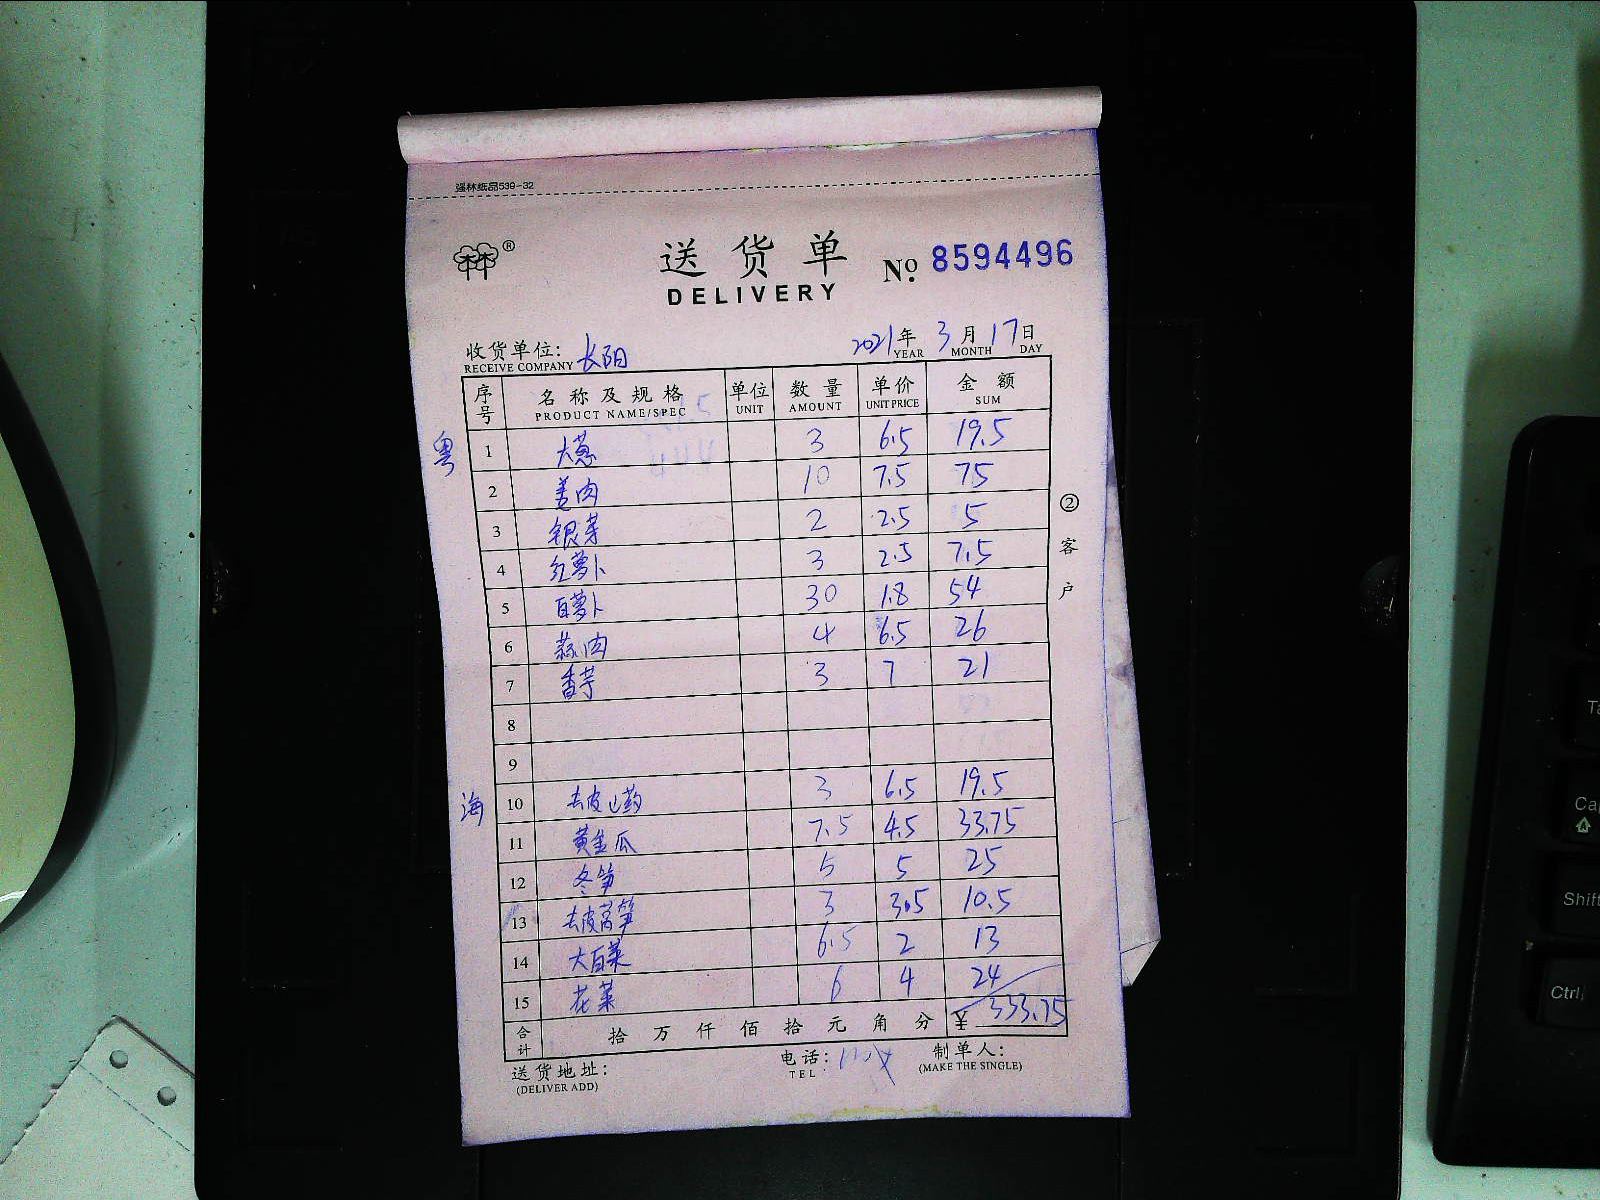 强林纸品539-32
®
送货单 No. 8594496
DELIVERY
收货单位: 长阳 2021年 3月 17日
RECEIVE COMPANY YEAR MONTH DAY
序号 名称及规格 单位 数量 单价 金额
PRODUCT NAME/SPEC UNIT AMOUNT UNIT PRICE SUM
粤 1 大葱 3 6.5 19.5
2 姜肉 10 7.5 75
3 银芽 2 2.5 5
4 红萝卜 3 2.5 7.5
5 白萝卜 30 1.8 54
6 蒜肉 4 6.5 26
7 香芋 3 7 21
8
9
海 10 去皮山药 3 6.5 19.5
11 黄金瓜 7.5 4.5 33.75
12 冬笋 5 5 25
13 去皮莴笋 3 3.5 10.5
14 大白菜 6.5 2 13
15 花菜 6 4 24
合计 拾万仟佰拾元角分 ¥ 333.75
②客户
送货地址: 电话: 制单人:
(DELIVER ADD) TEL (MAKE THE SINGLE)
Shift
Ctrl